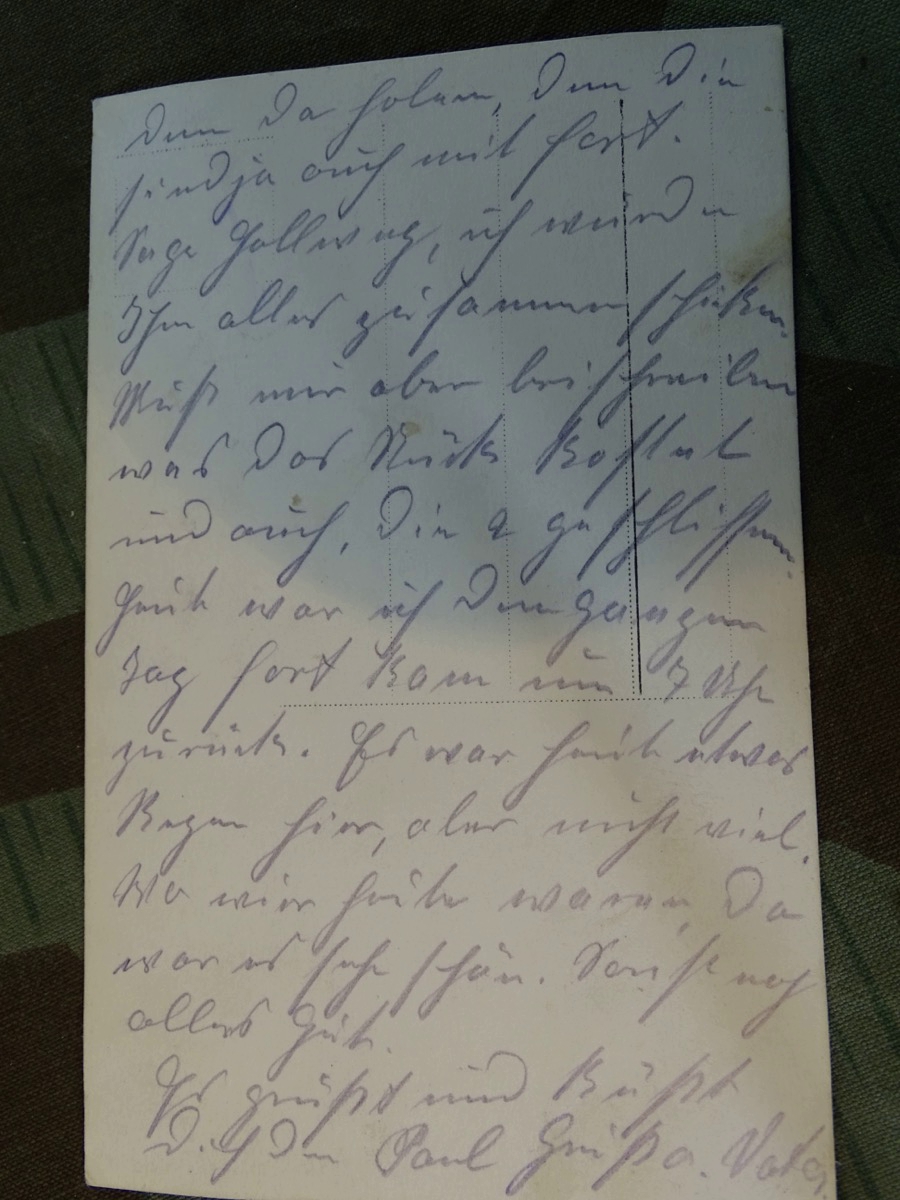 denn da holen, denn die
sind ja auch mit fort.
Sage Hollweg, ich würde
Ihm alles zusammen schicken.
Mußt mir aber bei schreiben
was das Stück kostet
und auch, die 2 geschlissen.
Heute war ich den ganzen
Tag fort kam um 7 Uhr
zurück. Es war heute etwas
Regen hier, aber nicht viel.
Wo wier heute waren, da
war es sehr schön. Sonst noch
alles gut.
Es grüßt und küßt
Dich dein Paul Gruß a. Vater